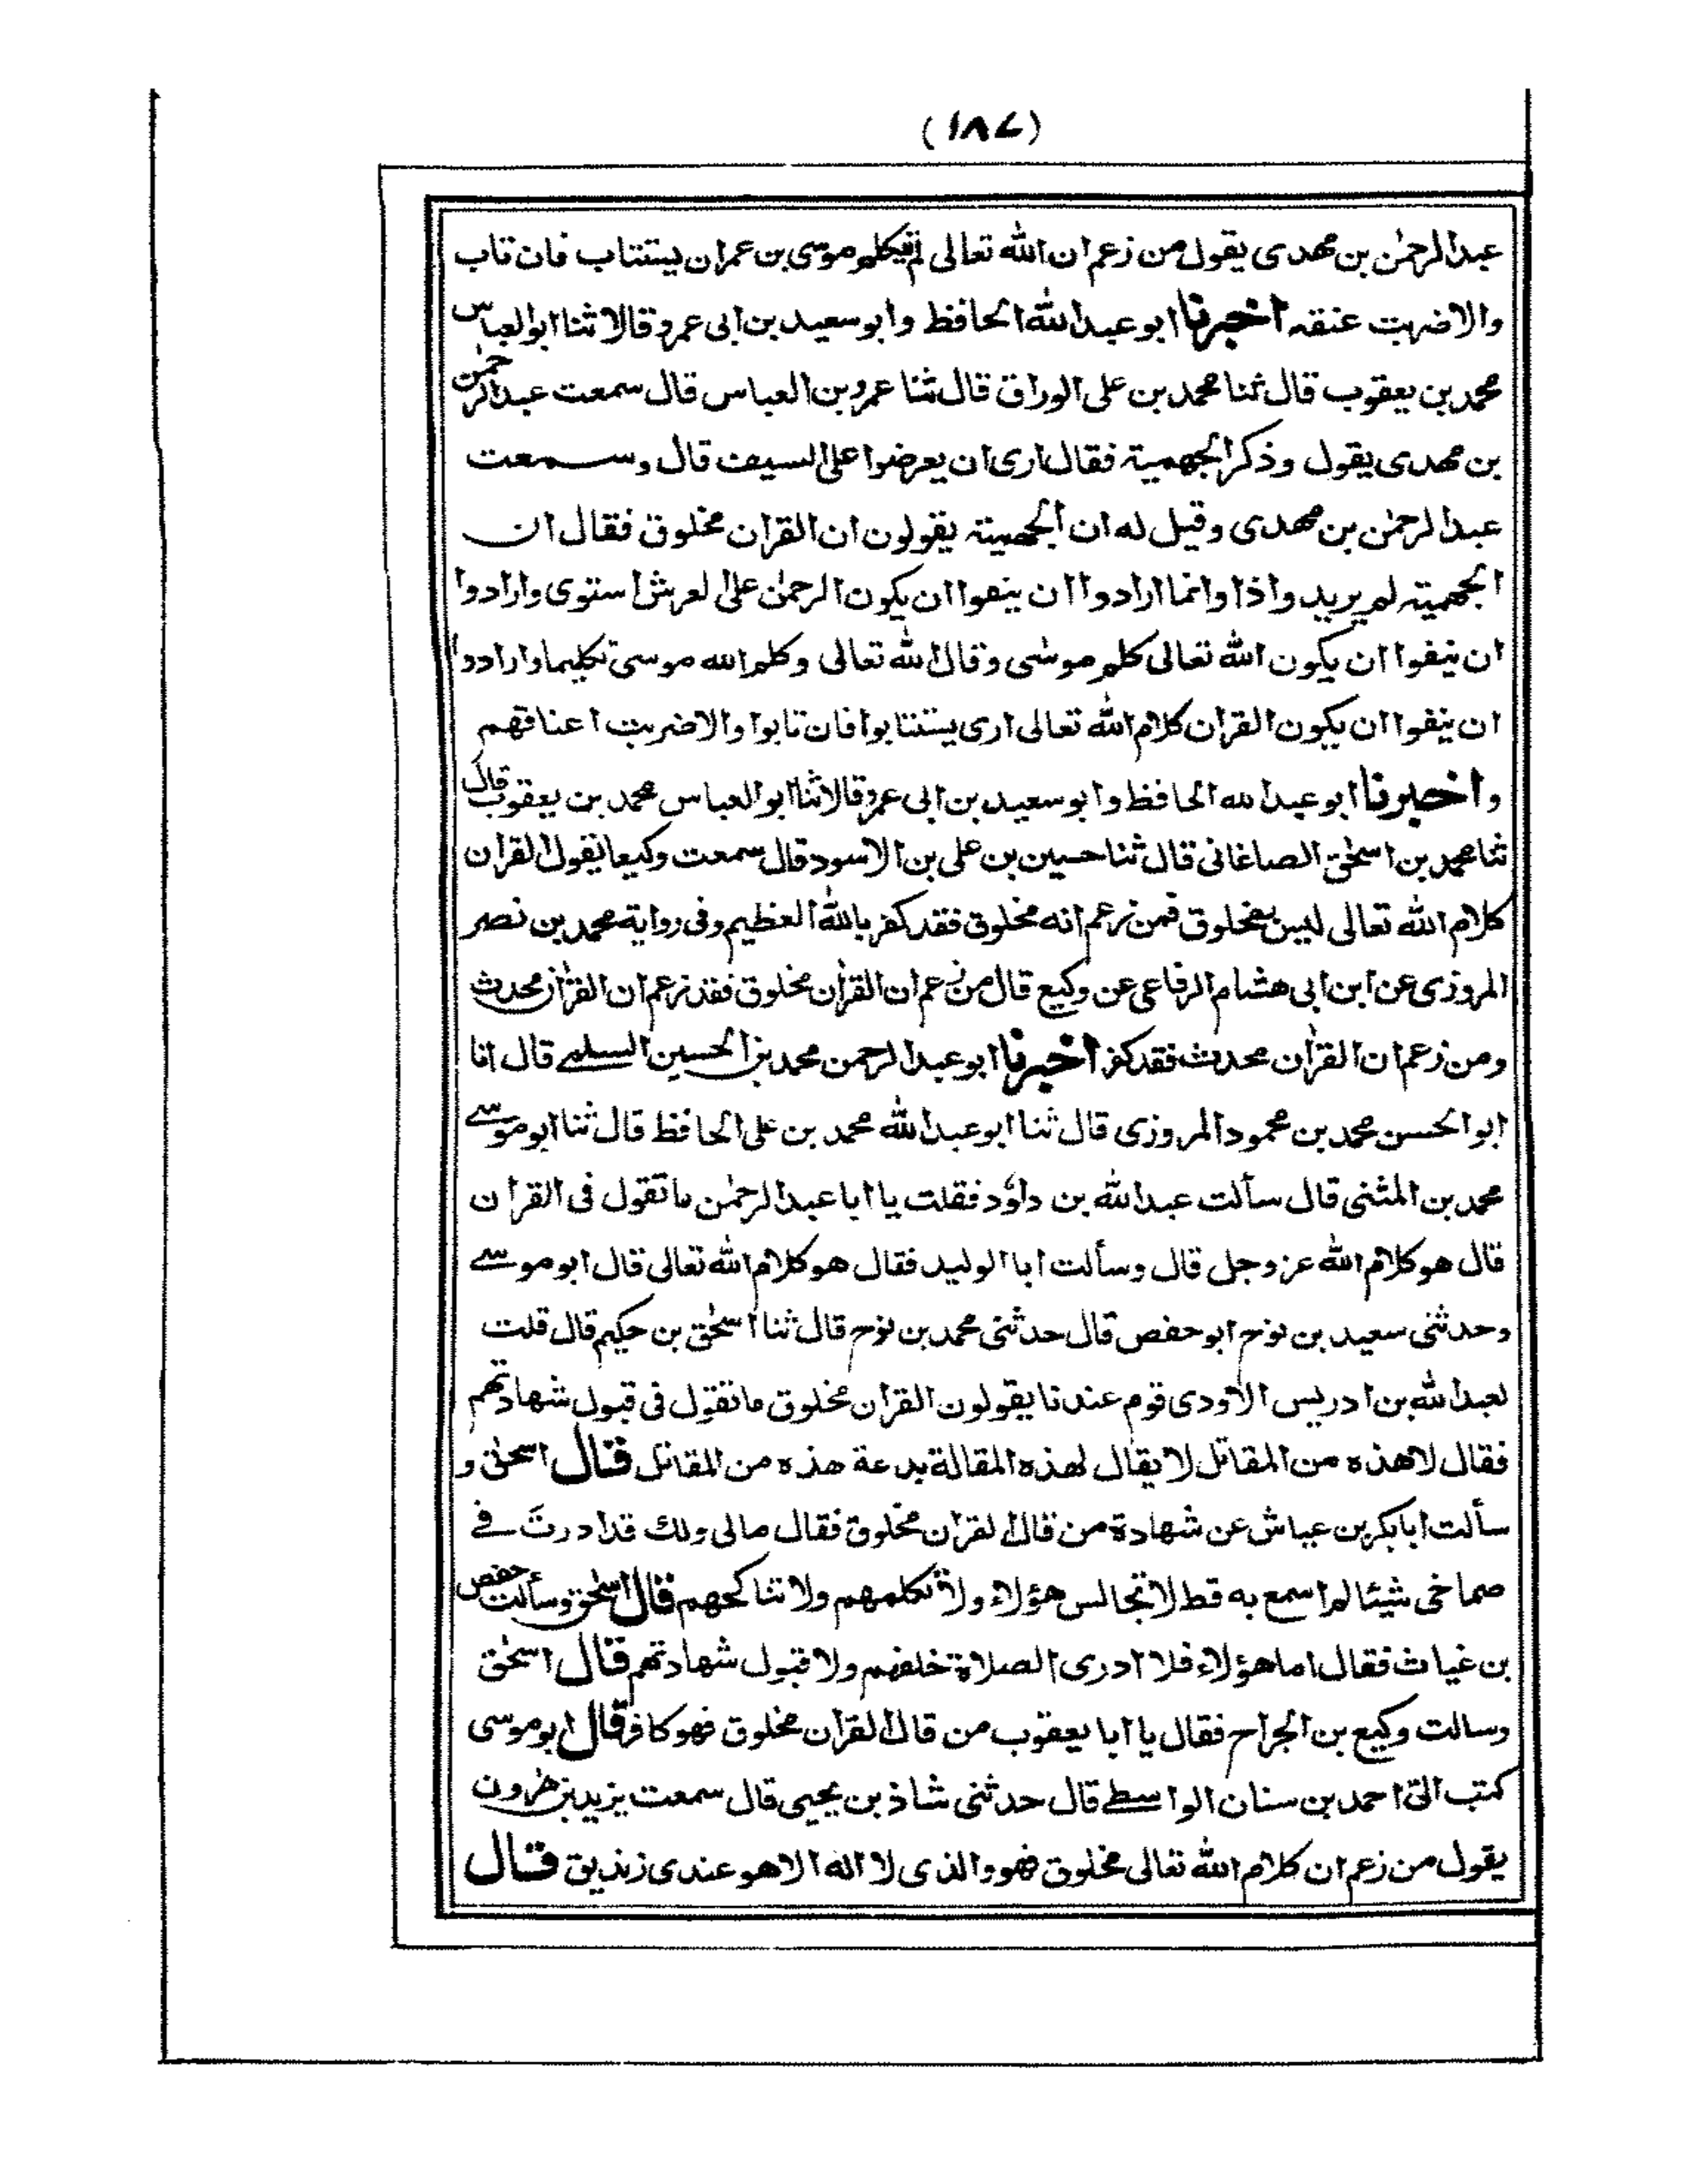 (١٨٧)
عبدالرحمٰن بن مهدى يقول من زعم ان الله تعالى لم يكلم موسى بن عمران يستتاب فان تاب
والا ضربت عنقه اخبرنا ابو عبدالله الحافظ وابو سعيد بن ابى عمرو قالا ثنا ابوالعباس
محمد بن يعقوب قال ثنا محمد بن على الوراق قال ثنا عمرو بن العباس قال سمعت عبدالرحمٰن
بن مهدى يقول وذكر الجهمية فقال ارى ان يعرضوا على السيف قال وسمعت
عبدالرحمٰن بن مهدى وقيل له ان الجهمية يقولون ان القرآن مخلوق فقال ان
الجهمية لم يريدوا ذا وانما ارادوا ان ينفوا ان يكون الرحمٰن على العرش استوى وارادوا
ان ينفوا ان يكون الله تعالى كلم موسٰى وقال الله تعالى وكلم الله موسى تكليما وارادوا
ان ينفوا ان يكون القرآن كلام الله تعالى ارى يستتابوا فان تابوا والا ضربت اعناقهم
واخبرنا ابو عبدالله الحافظ وابو سعيد بن ابى عمرو قالا ثنا ابوالعباس محمد بن يعقوب قال
ثنا محمد بن اسحٰق الصاغانى قال ثنا حسين بن على بن الاسود قال سمعت وكيعا يقول القرآن
كلام الله تعالى ليس بمخلوق فمن زعم انه مخلوق فقد كفر بالله العظيم وفى رواية محمد بن نصر
المروزى عن ابن ابى هشام الرفاعى عن وكيع قال من زعم ان القرآن مخلوق فقد زعم ان القرآن محدث
ومن زعم ان القرآن محدث فقد كفر اخبرنا ابو عبدالرحمن محمد بن الحسين السلمى قال انا
ابوالحسن محمد بن محمود المروزى قال ثنا ابو عبدالله محمد بن على الحافظ قال ثنا ابو موسے
محمد بن المثنى قال سألت عبدالله بن داؤد فقلت يا ابا عبدالرحمٰن ما تقول فى القرآن
قال هو كلام الله عز وجل قال وسألت ابا الوليد فقال هو كلام الله تعالى قال ابو موسے
وحدثنى سعيد بن نوح ابو حفص قال حدثنى محمد بن نوح قال ثنا اسحٰق بن حكيم قال قلت
لعبدالله بن ادريس الاودى قوم عندنا يقولون القرآن مخلوق ما تقول فى قبول شهادتهم
فقال لا هذه من المقاتل لا يقال لهذه المقالة بدعة هذه من المقاتل قال اسحٰق و
سألت ابابكر بن عياش عن شهادة من قال القرآن مخلوق فقال مالى ولك قد ادرت فے
صماخى شيئا لم اسمع به قط لا تجالس هؤلاء ولا تكلمهم ولا تناكحهم قال اسحٰق وسألت حفص
بن غياث فقال اما هؤلاء فلا ادرى الصلاة خلفهم ولا قبول شهادتهم قال اسحٰق
وسالت وكيع بن الجراح فقال يا ابا يعقوب من قال القرآن مخلوق فهو كافر قال ابو موسى
كتب الىّ احمد بن سنان الواسطے قال حدثنى شاذ بن يحيى قال سمعت يزيد بن هٰرون
يقول من زعم ان كلام الله تعالى مخلوق فهو والذى لا اله الا هو عندى زنديق قال